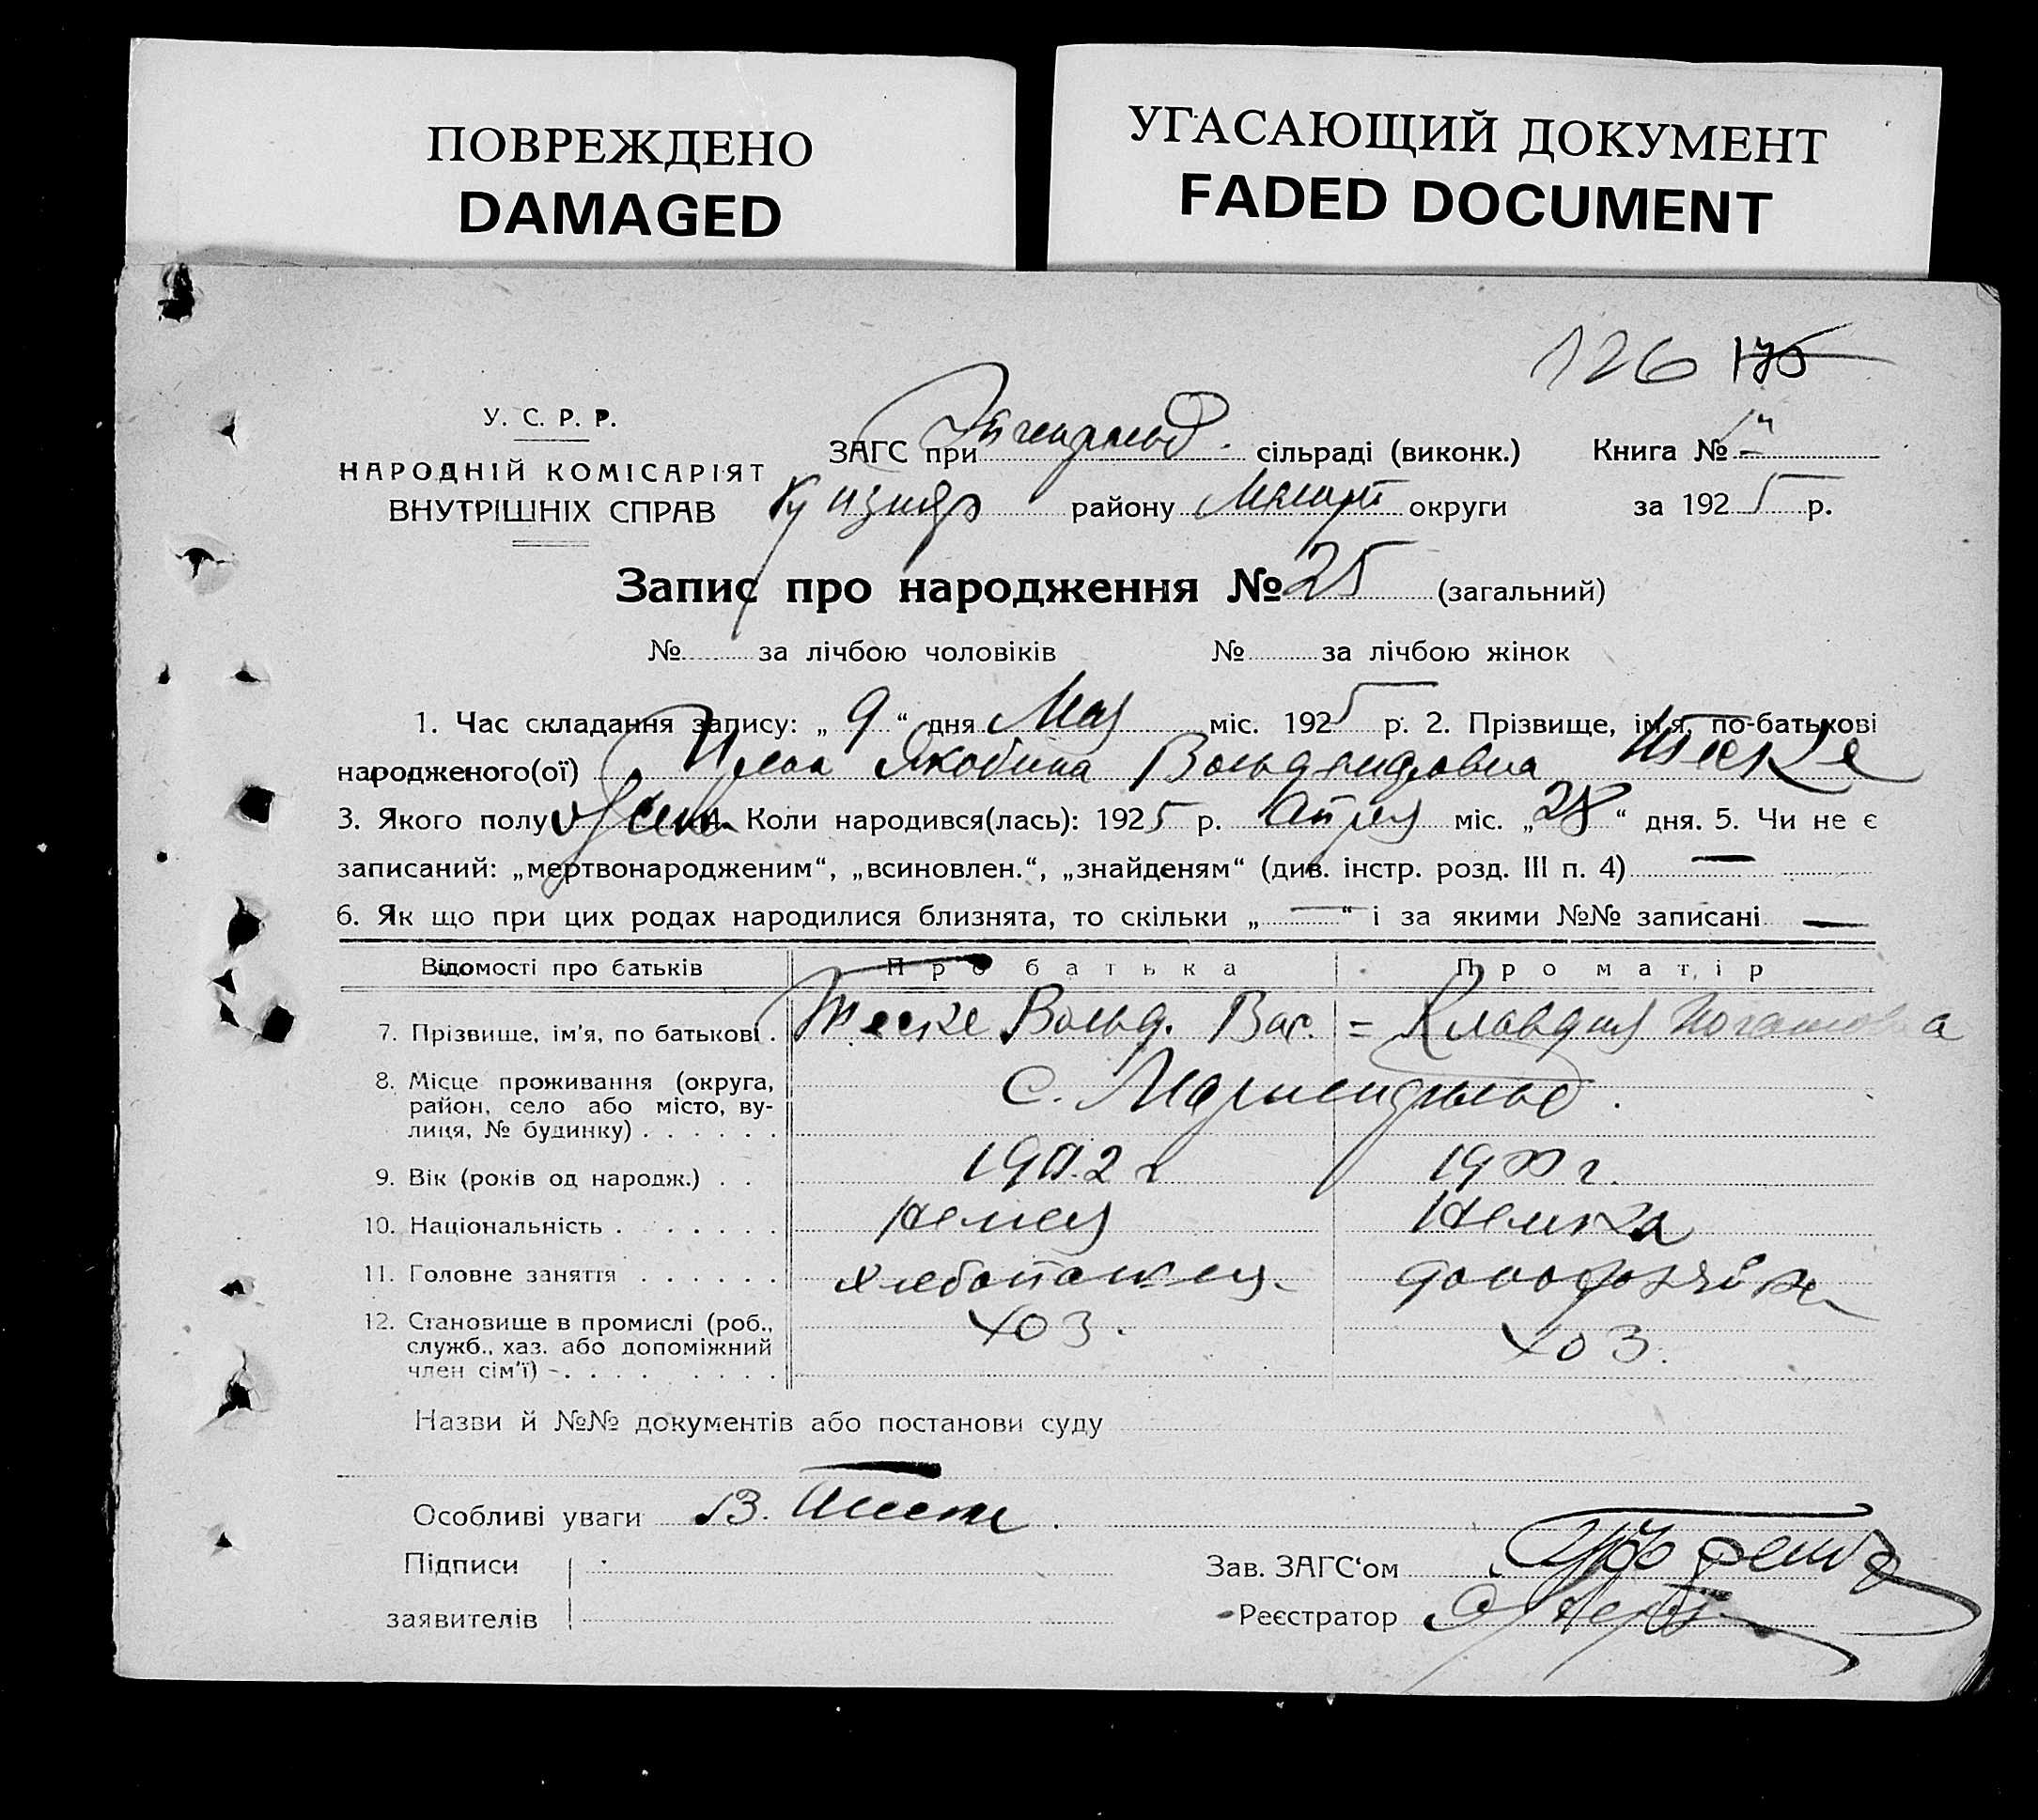 ПОВРЕЖДЕНО
DAMAGED
УГАСАЮЩИЙ ДОКУМЕНТ
FADED DOCUMENT
126 175
У. С. Р. Р.
НАРОДНІЙ КОМІСАРІЯТ
ВНУТРІШНІХ СПРАВ
ЗАГС при сільраді (виконк.)
району округи
Книга №
за 1925 р.
Запис про народження № 25 (загальний)
№ за лічбою чоловіків № за лічбою жінок
1. Час складання запису: „ 9 “ дня Мая міс. 1925 р. 2. Прізвище, ім'я, по-батькові
народженого(ої) Якобина Теске
3. Якого полу жен. 4. Коли народився(лась): 1925 р. Апреля міс. „ 28 “ дня. 5. Чи не є
записаний: „мертвонародженим“, „всиновлен.“, „знайденям“ (див. інстр. розд. III п. 4) —
6. Як що при цих родах народилися близнята, то скільки „ — “ і за якими №№ записані —
Відомості про батьків Про батька Про матір
7. Прізвище, ім'я, по батькові . Теске Вольд. Вас. = Клавдия
8. Місце проживання (округа,
район, село або місто, ву-
лиця, № будинку) . . . . . . с.
9. Вік (років од народж.) . . 1902 г 1900 г.
10. Національність . . . . . . Немец Немка
11. Головне заняття . . . . . . Хлебопашец. домохозяйка
12. Становище в промислі (роб.,
служб., хаз. або допоміжний
член сім'ї) - . . . . . . . . . хоз. хоз.
Назви й №№ документів або постанови суду
Особливі уваги В. Теске .
Підписи
заявителів
Зав. ЗАГС'ом
Реєстратор